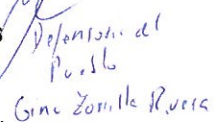 Defensoria del
Pueblo
Gina Zorrilla Rivera